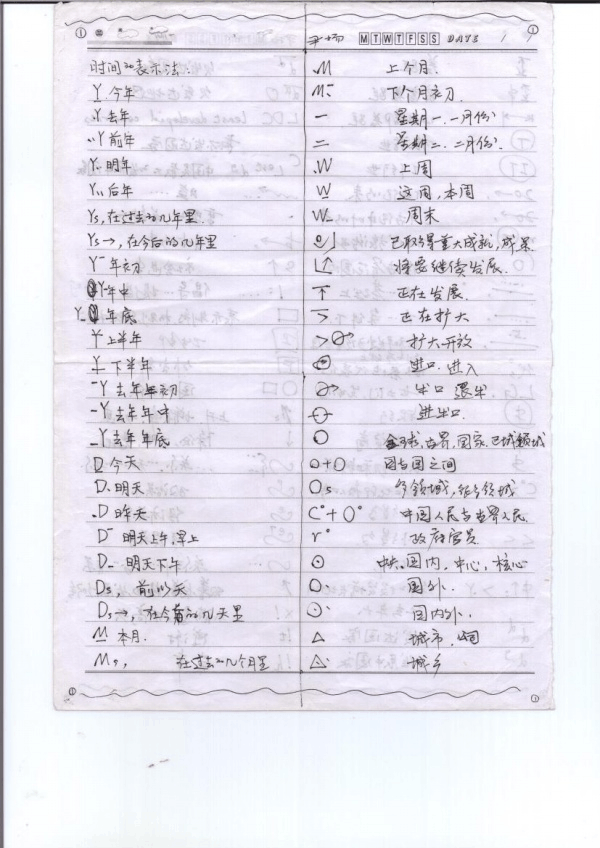 MTWTFSS DATE / /
时间的表示法.
Y 今年
.Y 去年
..Y 前年
Y. 明年
Y.. 后年
Ys, 在过去的几年里
Ys→, 在今后的几年里
Y¯ 年初
Y 年中
Y_ 年底
Y 上半年
Y 下半年
¯Y 去年年初
-Y 去年年中
_Y 去年年底
D 今天
D. 明天
.D 昨天
D¯ 明天上午,早上
D_ 明天下午
Ds, 前几天
Ds→, 在今后的几天里
M 本月.
Ms, 在过去的几个月里
.M 上个月.
M. 下个月初.
一 星期一.一月份
二 星期二.二月份
.W 上周
W 这周,本周
W_ 周末
已取得重大成就,成果.
将要继续发展.
正在发展.
> 正在扩大
扩大开放
进口.进入
出口 退出
进出口.
○ 全球,世界,国家.区域领域
○+○ 国与国之间
○s 各领域,
C°+○° 中国人民与世界人民.
r° 政府官员
⊙ 中央.国内,中心,核心
○. 国外.
⊙. 国内外.
△ 城市.
△. 城乡